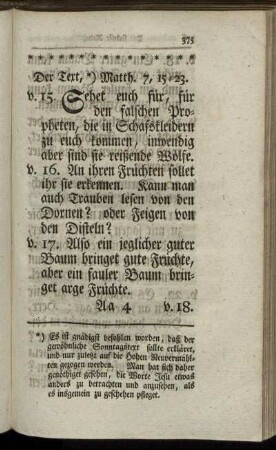 375
* * * * * * * * * * * * * * * * * *
Der Text, *) Matth. 7, 15-23.
v. 15 Sehet euch für, für
den falschen Pro-
pheten, die in Schafskleidern
zu euch kommen, inwendig
aber sind sie reisende Wölfe.
v. 16. An ihren Früchten sollet
ihr sie erkennen. Kann man
auch Trauben lesen von den
Dornen? oder Feigen von
den Disteln?
v. 17. Also ein jeglicher guter
Baum bringet gute Früchte,
aber ein fauler Baum brin-
get arge Früchte.
Aa 4 v. 18.
*) Es ist gnädigst befohlen worden, daß der
gewöhnliche Sonntagstext sollte erkläret,
und nur zuletzt auf die Hohen Neuvermähl-
ten gezogen werden. Man hat sich daher
genöthiget gesehen, die Worte Jesu etwas
anders zu betrachten und anzusehen, als
es insgemein zu geschehen pfleget.